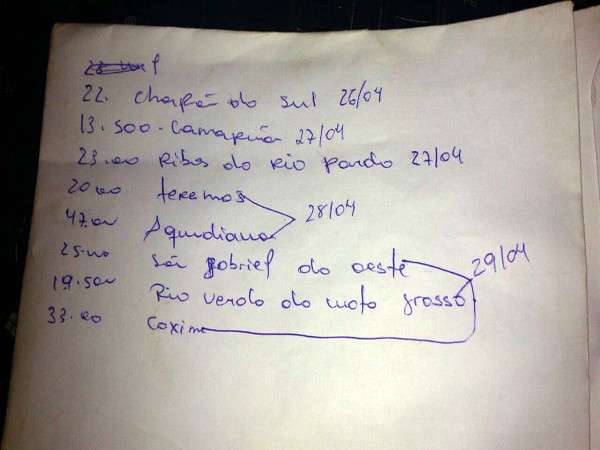 22. chapão do sul 26/04
13.500 - Camapuã 27/04
23.000 Ribas do Rio pardo 27/04
20.000 terenos
28/04
47.000 Aquidiana
25.000 são gabriel do oeste
29/04
19.500 Rio verdo do mato grosso
33.000 Coxim